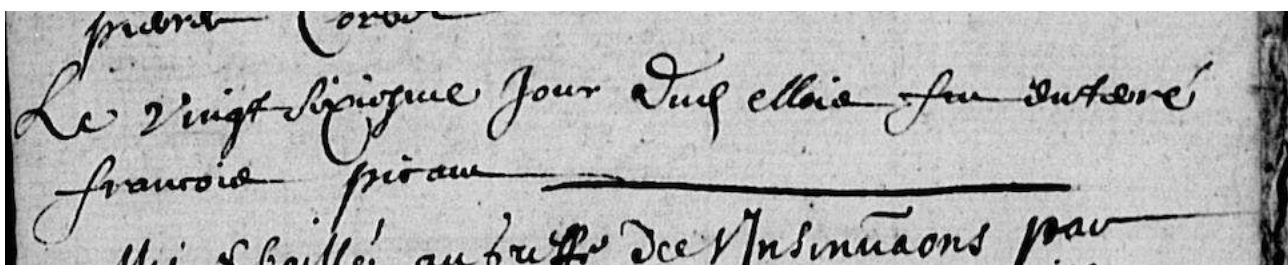 pierre Corbel
Le vingt sixiesme Jour Dud mois fut enterré
francois picau
Mis & baillé au Greffe des Insinuaons par